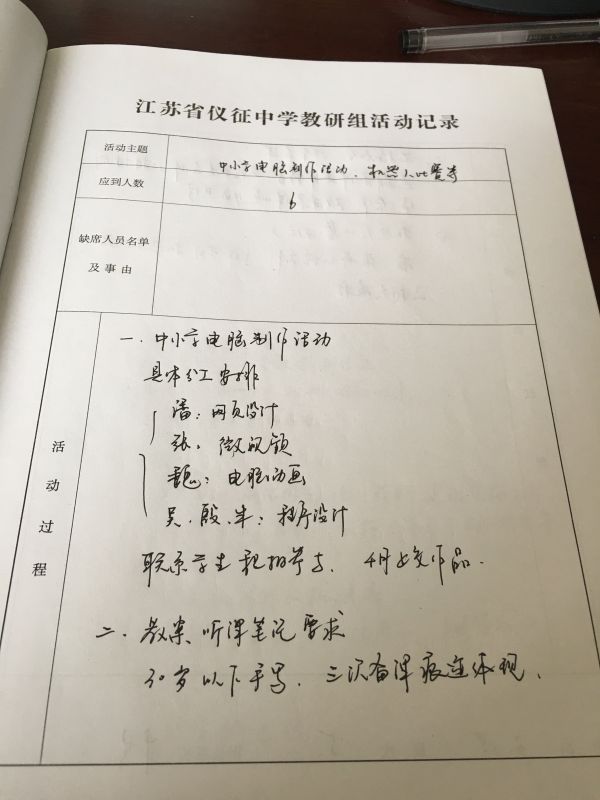 江苏省仪征中学教研组活动记录
活动主题 中小学电脑制作活动、机器人比赛等
应到人数 6
缺席人员名单
及事由
活动过程
一、中小学电脑制作活动
具体分工安排
潘：网页设计
张：微视频
魏：电脑动画
吴、殷、朱：程序设计
联系学生积极参与、4月上交作品.
二、教案、听课笔记要求
30岁以下手写、三次备课痕迹体现、